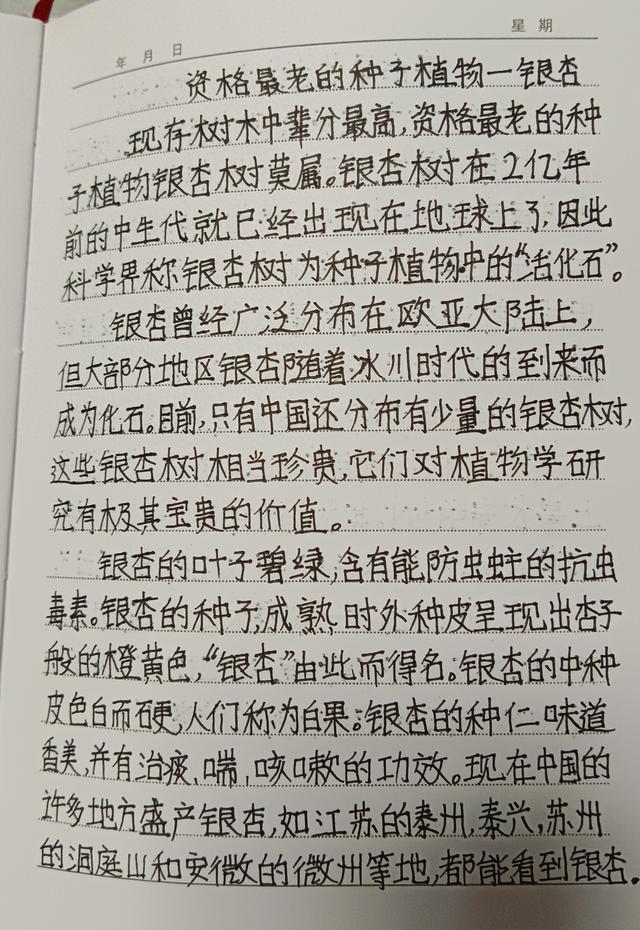 年 月 日
星 期
资格最老的种子植物一银杏
现存树木中辈分最高,资格最老的种
子植物银杏树莫属。银杏树在2亿年
前的中生代就已经出现在地球上了,因此
科学界称银杏树为种子植物中的“活化石”。
银杏曾经广泛分布在欧亚大陆上,
但大部分地区银杏随着冰川时代的到来而
成为化石。目前,只有中国还分布有少量的银杏树,
这些银杏树相当珍贵,它们对植物学研
究有极其宝贵的价值。
银杏的叶子碧绿,含有能防虫蛀的抗虫
毒素。银杏的种子成熟时外种皮呈现出杏子
般的橙黄色,“银杏”由此而得名。银杏的中种
皮色白而硬,人们称为白果。银杏的种仁味道
香美,并有治痰,喘,咳嗽的功效。现在中国的
许多地方盛产银杏,如江苏的泰州,泰兴,苏州
的洞庭山和安徽的徽州等地,都能看到银杏。